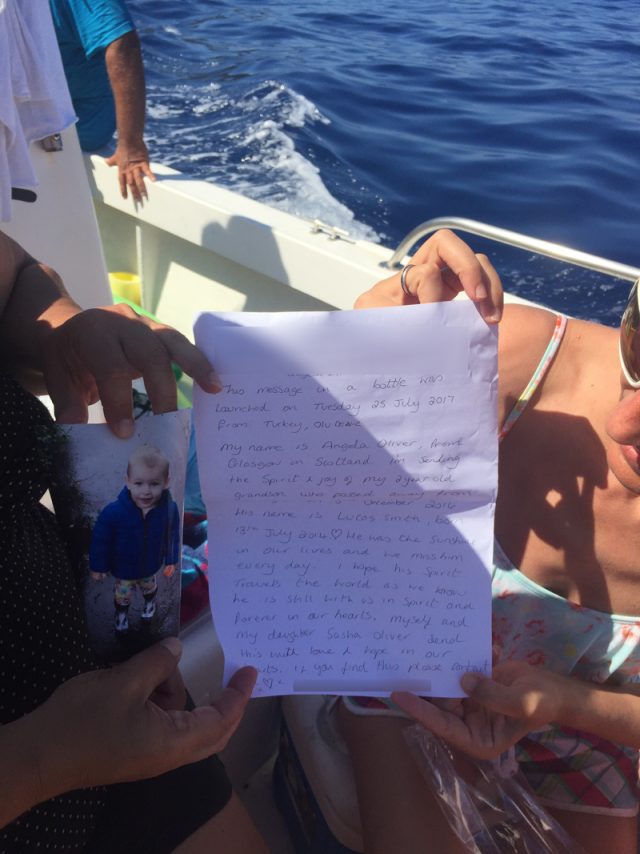 This message in a bottle was
launched on Tuesday 25 July 2017
from Turkey, Olu
My name is Angela Oliver, from
Glasgow in Scotland I'm sending
the Spirit & joy of my 2 year old
grandson who passed away from
2016
His name is Lucas Smith, born
13th July 2014 ♡ He was the Sunshine
in our lives and we miss him
every day. I hope his Spirit
travels the world as we know
he is still with us in Spirit and
forever in our hearts. Myself and
my daughter Sasha Oliver send
this with love & hope in our
hearts. If you find this please contact